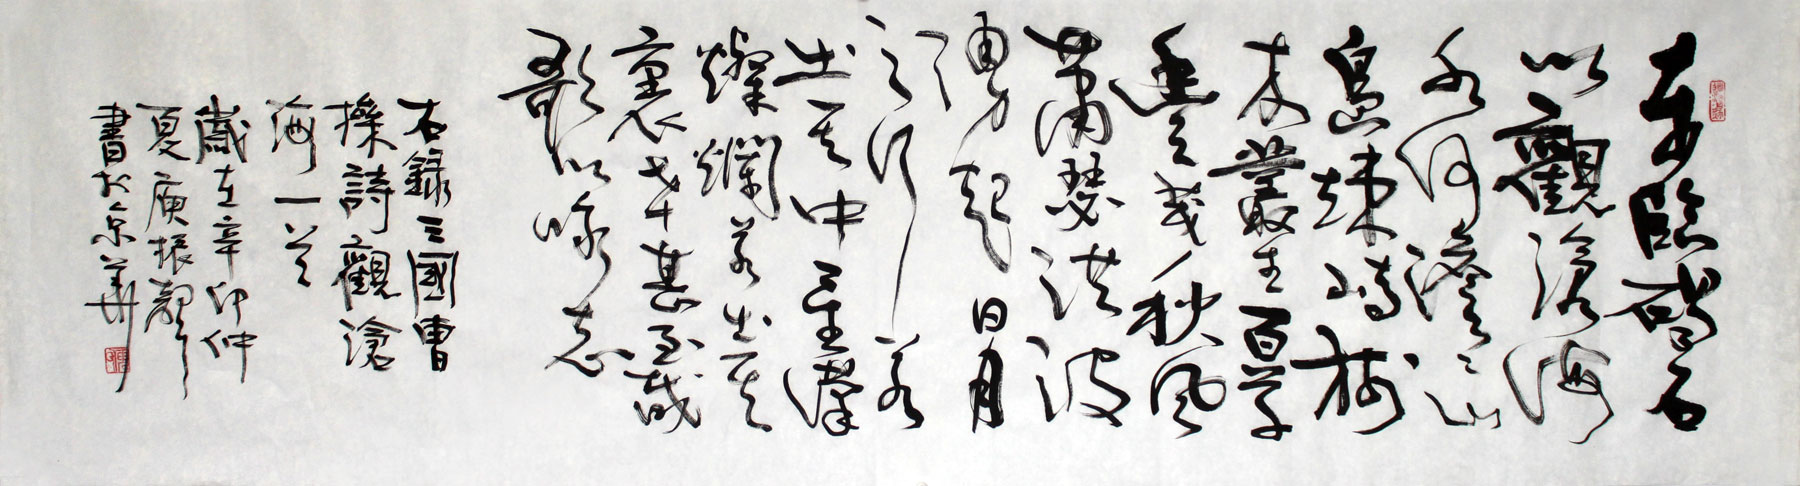 東臨碣石
以觀滄海
水何澹澹山
島竦峙樹
木叢生百草
豐茂秋風
蕭瑟洪波
湧起日月
之行若
出其中星漢
燦爛若出其
裏幸甚至哉
歌以詠志
右録三國曹
操詩觀滄
海一首
歲在辛卯仲
夏庚振聲
書於京華